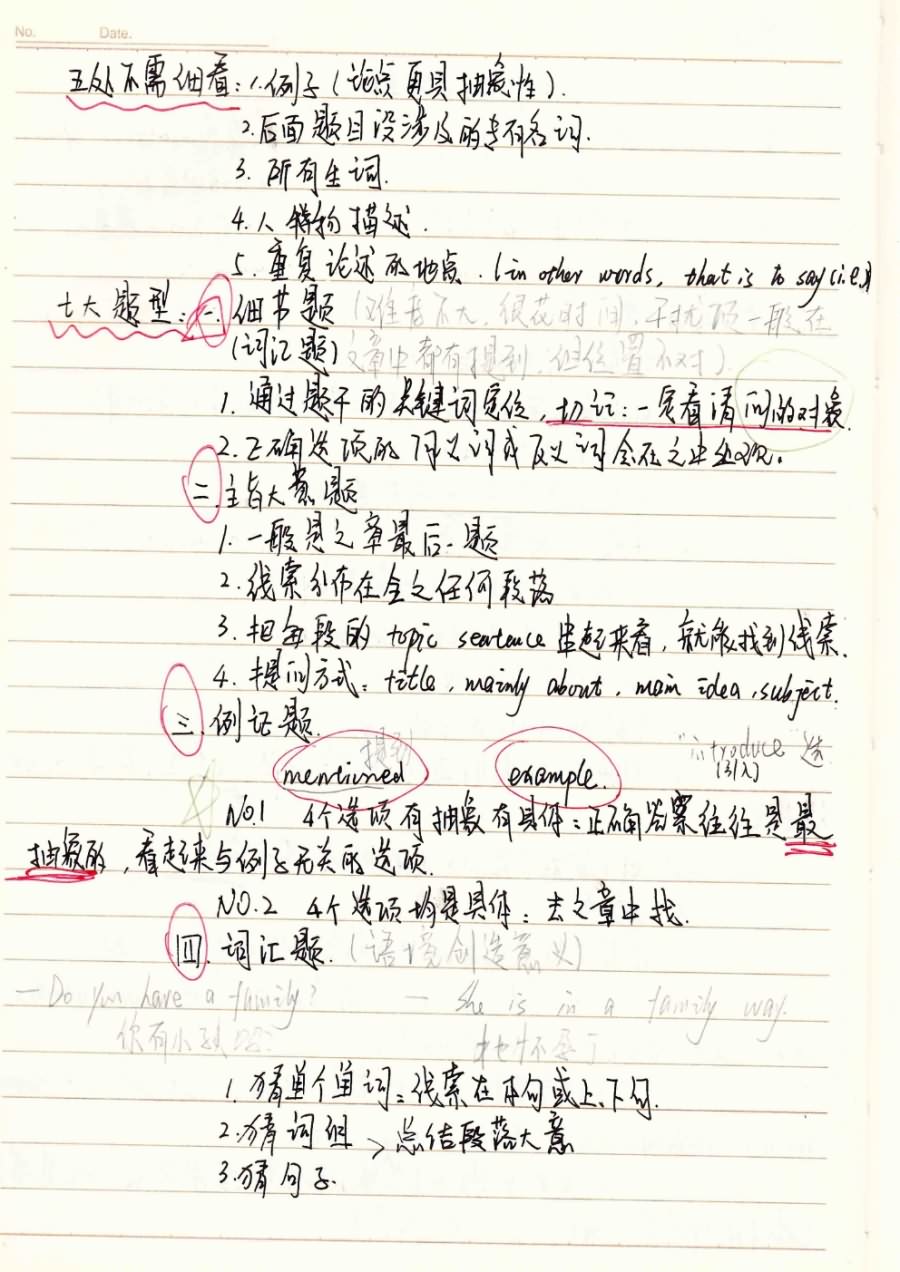 No.    Date.
五处不需细看：1.例子（论点更具抽象性）.
2.后面题目没涉及的专有名词.
3.所有生词.
4.人特物描述.
5.重复论述的地点.（in other words, that is to say (i.e.)）
七大题型：一.细节题（难度不大，很花时间，干扰项一般在
(词汇题) 文章中都有提到，但位置不对）
1.通过题干的关键词定位，切记：一定看清问的对象.
2.正确选项的同义词或反义词会在文中出现。
二.主旨大意题
1.一般是文章最后一题
2.线索分布在全文任何段落
3.把每段的 topic sentence 串起来看，就能找到线索.
4.提问方式：title, mainly about, main idea, subject.
三.例证题.
mentioned 提到 example. "introduce" 选
(引入)
No.1 4个选项有抽象有具体：正确答案往往是最
抽象的，看起来与例子无关的选项.
NO.2 4个选项均是具体：去文章中找.
四.词汇题.（语境创造意义）
— Do you have a family? — She is in a family way.
你有小孩吗? 她怀孕了
1.猜单个单词：线索在本句或上、下句.
2.猜词组 > 总结段落大意
3.猜句子.